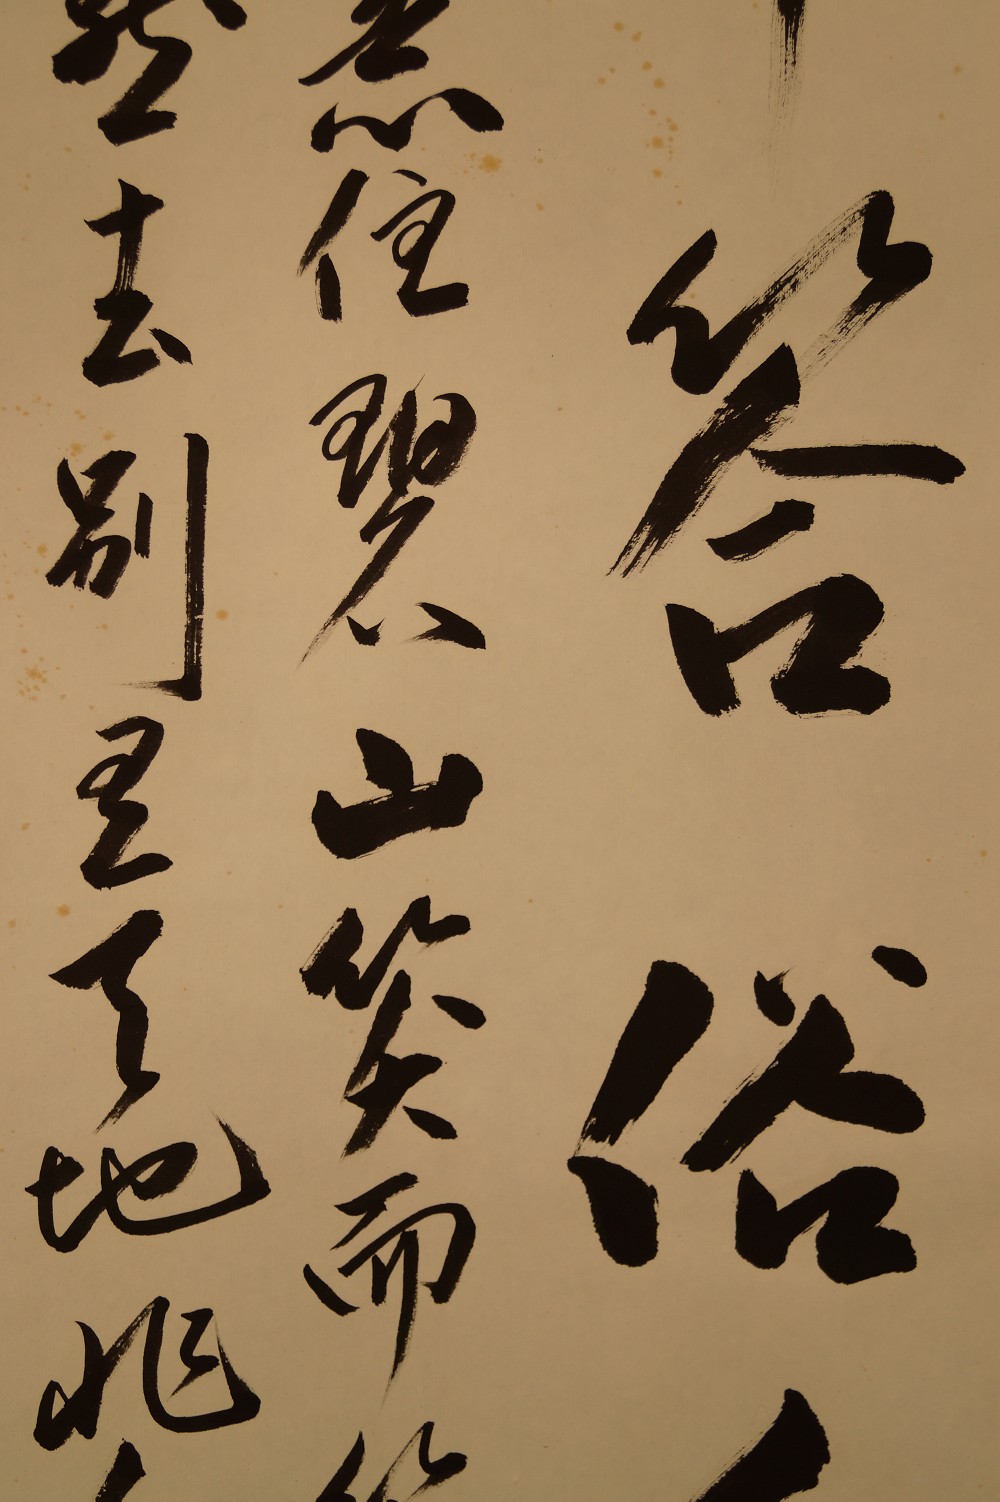 答俗人
意住碧山笑而
去別天地非人